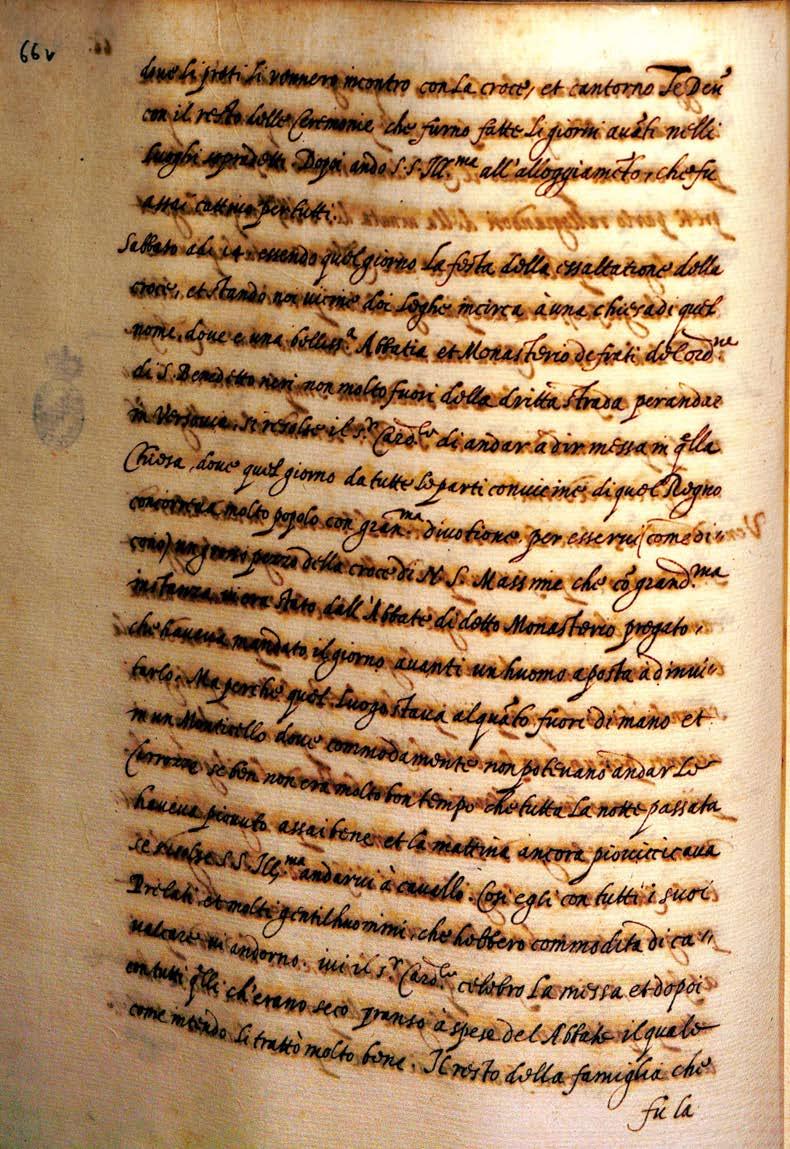 66v
doue li preti li vennero incontro con la croce, et cantorno Te Deũ
con il resto delle Ceremonie che furno fatte li giorni auãti nelli
luoghi sopradetti. Dopoi ando S.S. Ill.ma all'alloggiamẽto, che fu
assai cattiuo per tutti.
Sabbato adi 14. essendo quel giorno la festa della essaltatione della
croce, et stando noi vicine doi leghe incirca à una chiesa di quel
nome, doue e una belliss.a Abbatia et Monasterio de frati del'ord.ne
di S. Benedetto neri non molto fuori della dritta strada per andar
in Versouia. si resolse il s.r Card.le di andar à dir messa in q̃lla
Chiesa, doue quel giorno da tutte le parti conuicine di quel Regno
concorreua molto popolo con gran.ma diuotione per esserui (come di=
cono) un gran pezzo della croce di N. S. Massime che cõ grand.ma
instanza n'era stato dall'Abbate di detto Monasterio pregato,
che haueua mandato il giorno auanti un huomo a posta ad inui=
tarlo. Ma perche quel luogo staua alquãto fuori di mano et
in un Monticello doue commodamente non poteuano andar le
Carrozze se ben non era molto bon tempo che tutta la notte passata
haueua piouuto assai bene et la mattina ancora piouicicaua
se risolse S.S. Ill.ma andarui à cauallo. Cosi egli con tutti i suoi
Prelati et molti gentilhuomini, che hebbero commodita di ca=
ualcare ui andorno. iui il s.r Card.le celebro la messa et dopoi
con tutti q̃lli ch'erano seco pranso à spese del Abbate il quale
come intendo li trattò molto bene. Il resto della famiglia che
fu la